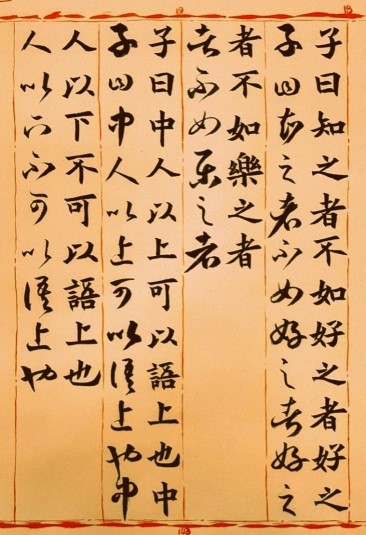 子曰知之者不如好之者好之
子曰知之者不如好之者好之
者不如樂之者
者不如樂之者
子曰中人以上可以語上也中
子曰中人以上可以語上也中
人以下不可以語上也
人以下不可以語上也